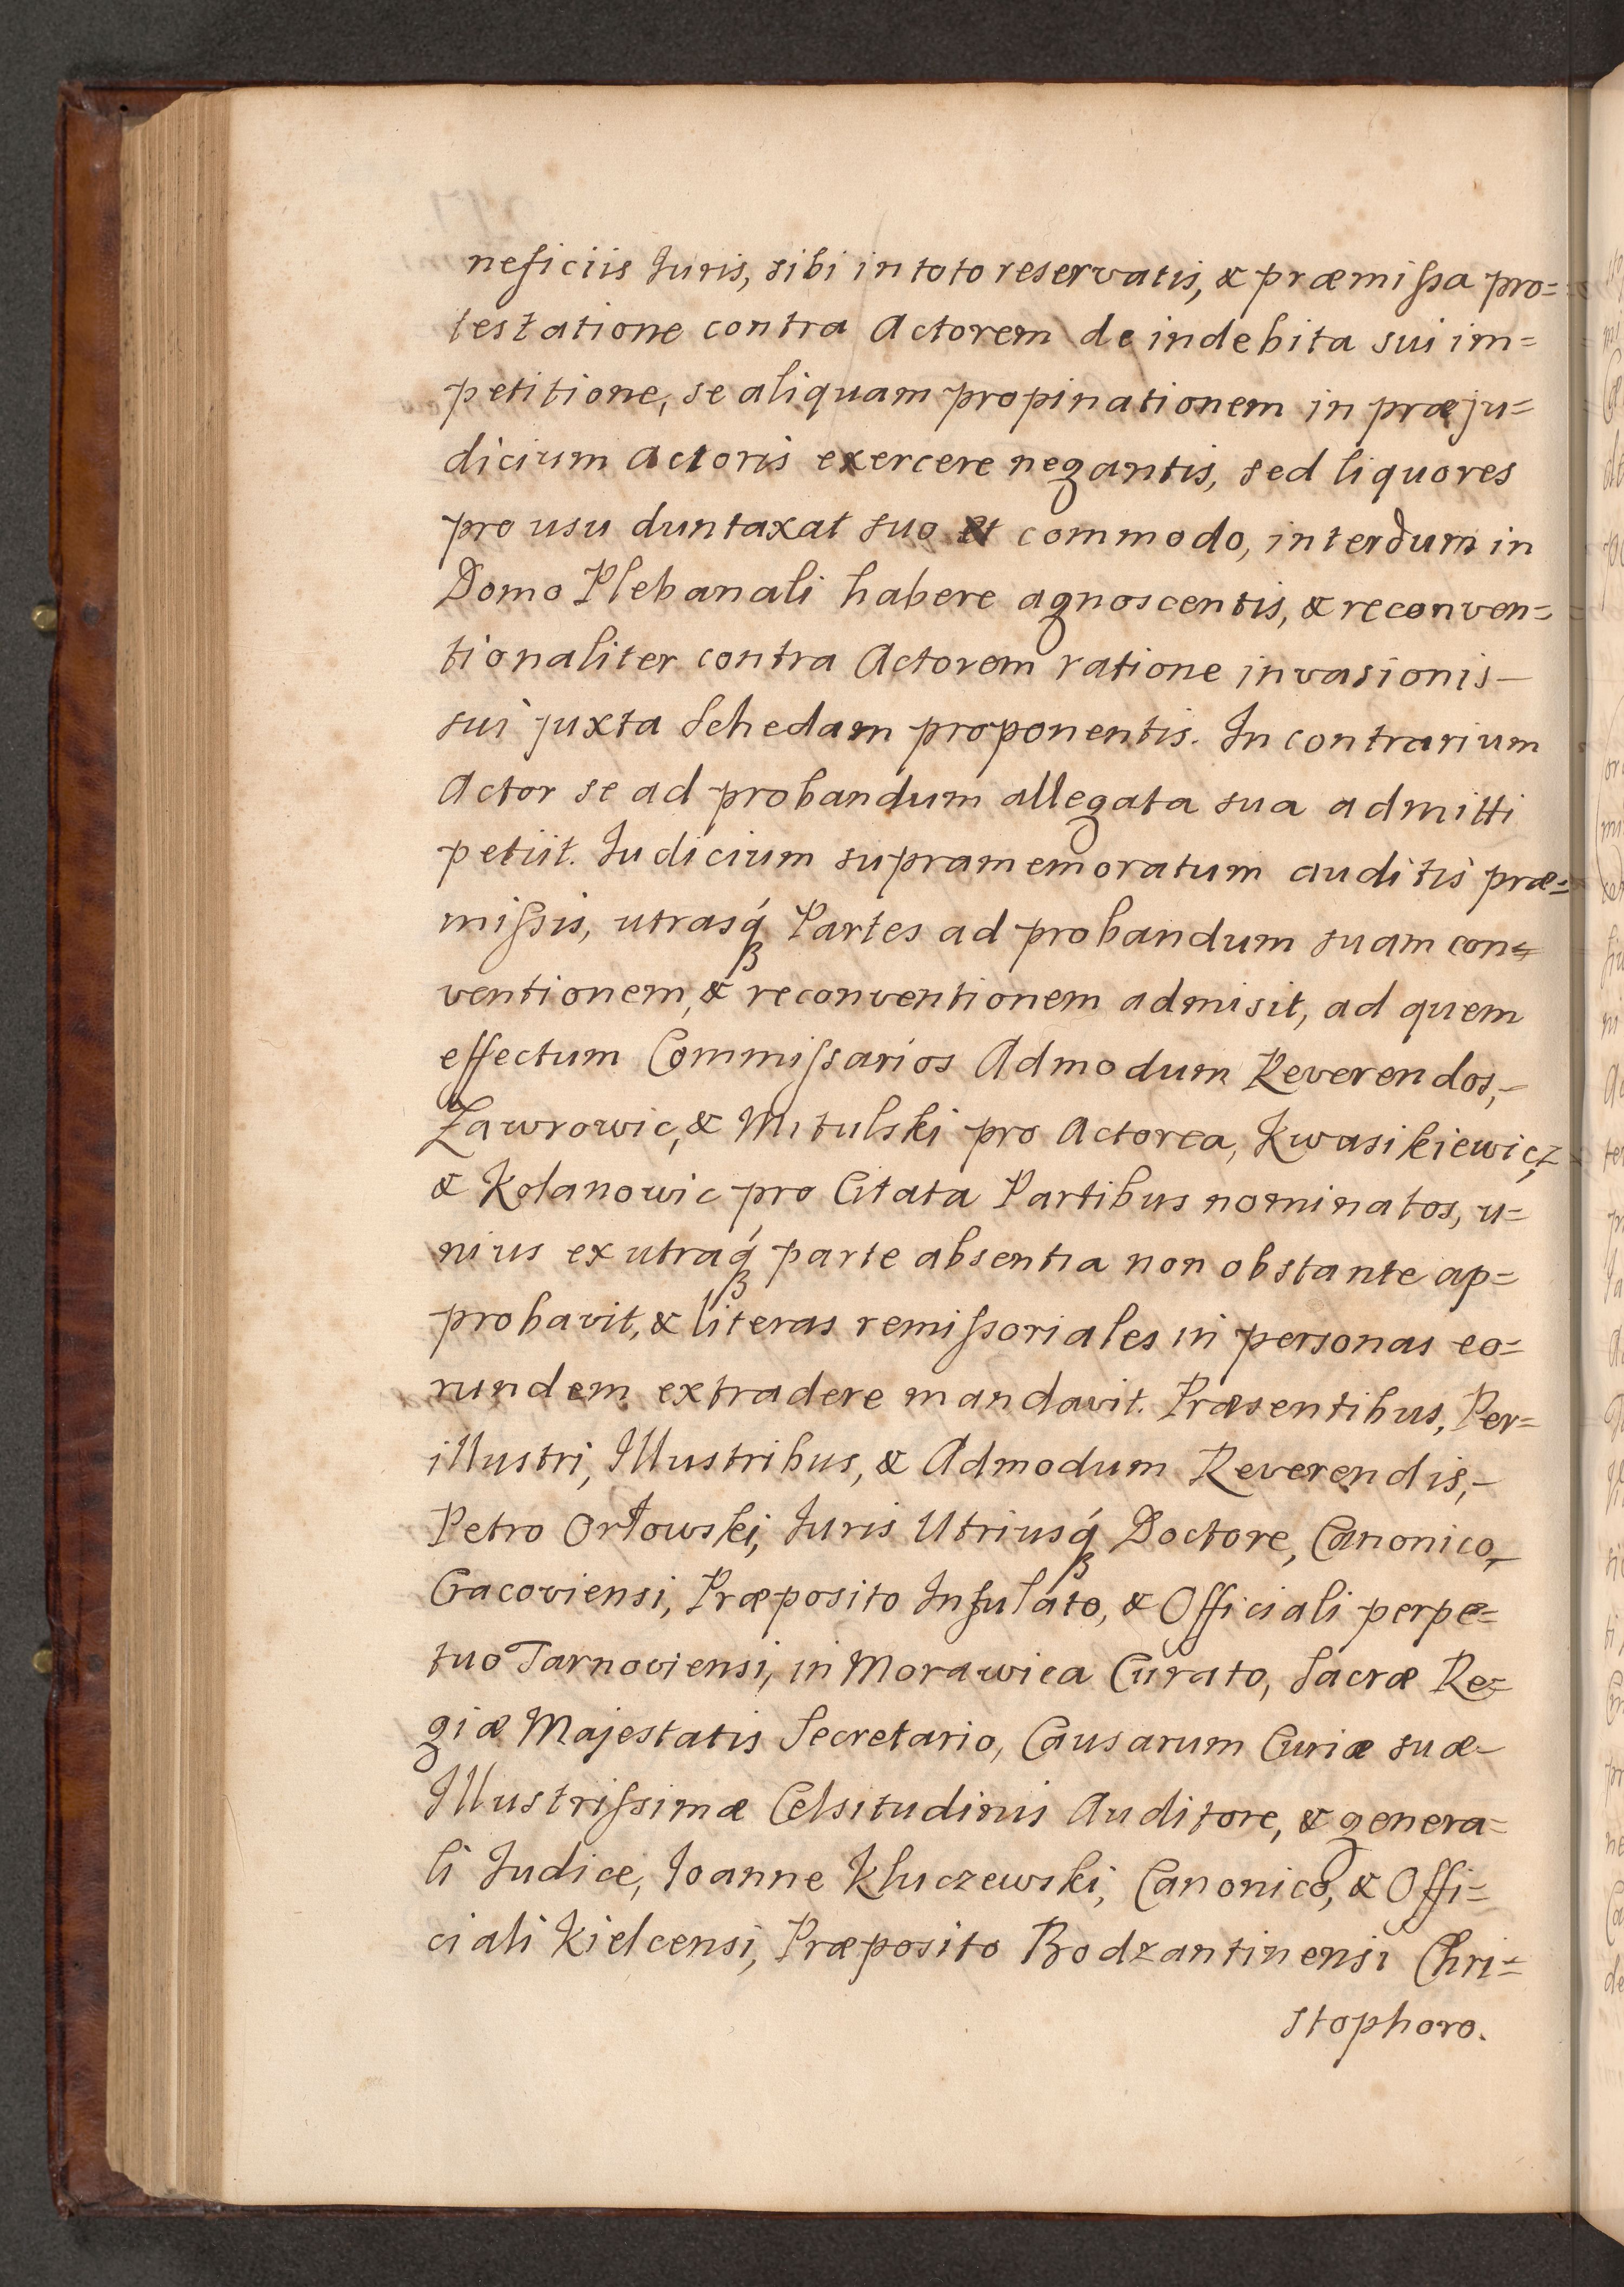 neficiis Juris, sibi in toto reservatis, & præmissa pro=
testatione contra Actorem de indebita sui im=
petitione, se aliquam propinationem in præju=
dicium actoris exercere negantis, sed liquores
pro usu duntaxat suo et commodo, interdum in
Domo Plebanali habere agnoscentis, & reconven=
tionaliter contra Actorem ratione invasionis
sui juxta Schedam proponentis. In contrarium
Actor se ad probandum allegata sua admitti
petiit. Judicium supramemoratum auditis præ=
missis, utrasq́ꝫ Partes ad probandum suam con=
ventionem, & reconventionem admisit, ad quem
effectum Commissarios Admodum Reverendos,
Zawrowic, & Mitulski pro Actorea, Kwasikiewicz,
& Kolanowic pro Citata Partibus nominatos, u=
nius ex utraq́ꝫ parte absentia non obstante ap=
probavit, & literas remissoriales in personas eo=
rundem extradere mandavit. Præsentibus, Per=
illustri, Illustribus, & Admodum Reverendis,
Petro Orłowski, Juris Utriusq́ꝫ Doctore, Canonico
Cracoviensi, Præposito Infulato, & Officiali perpe=
tuo Tarnoviensi, in Morawica Curato, Sacræ Re=
giæ Majestatis Secretario, Causarum Curiæ suæ
Illustrissimæ Celsitudinis Auditore, & genera=
li Judice, Joanne Kluczewski, Canonico, & Offi=
ciali Kielcensi, Præposito Bodzantinensi Chri=
stophoro.